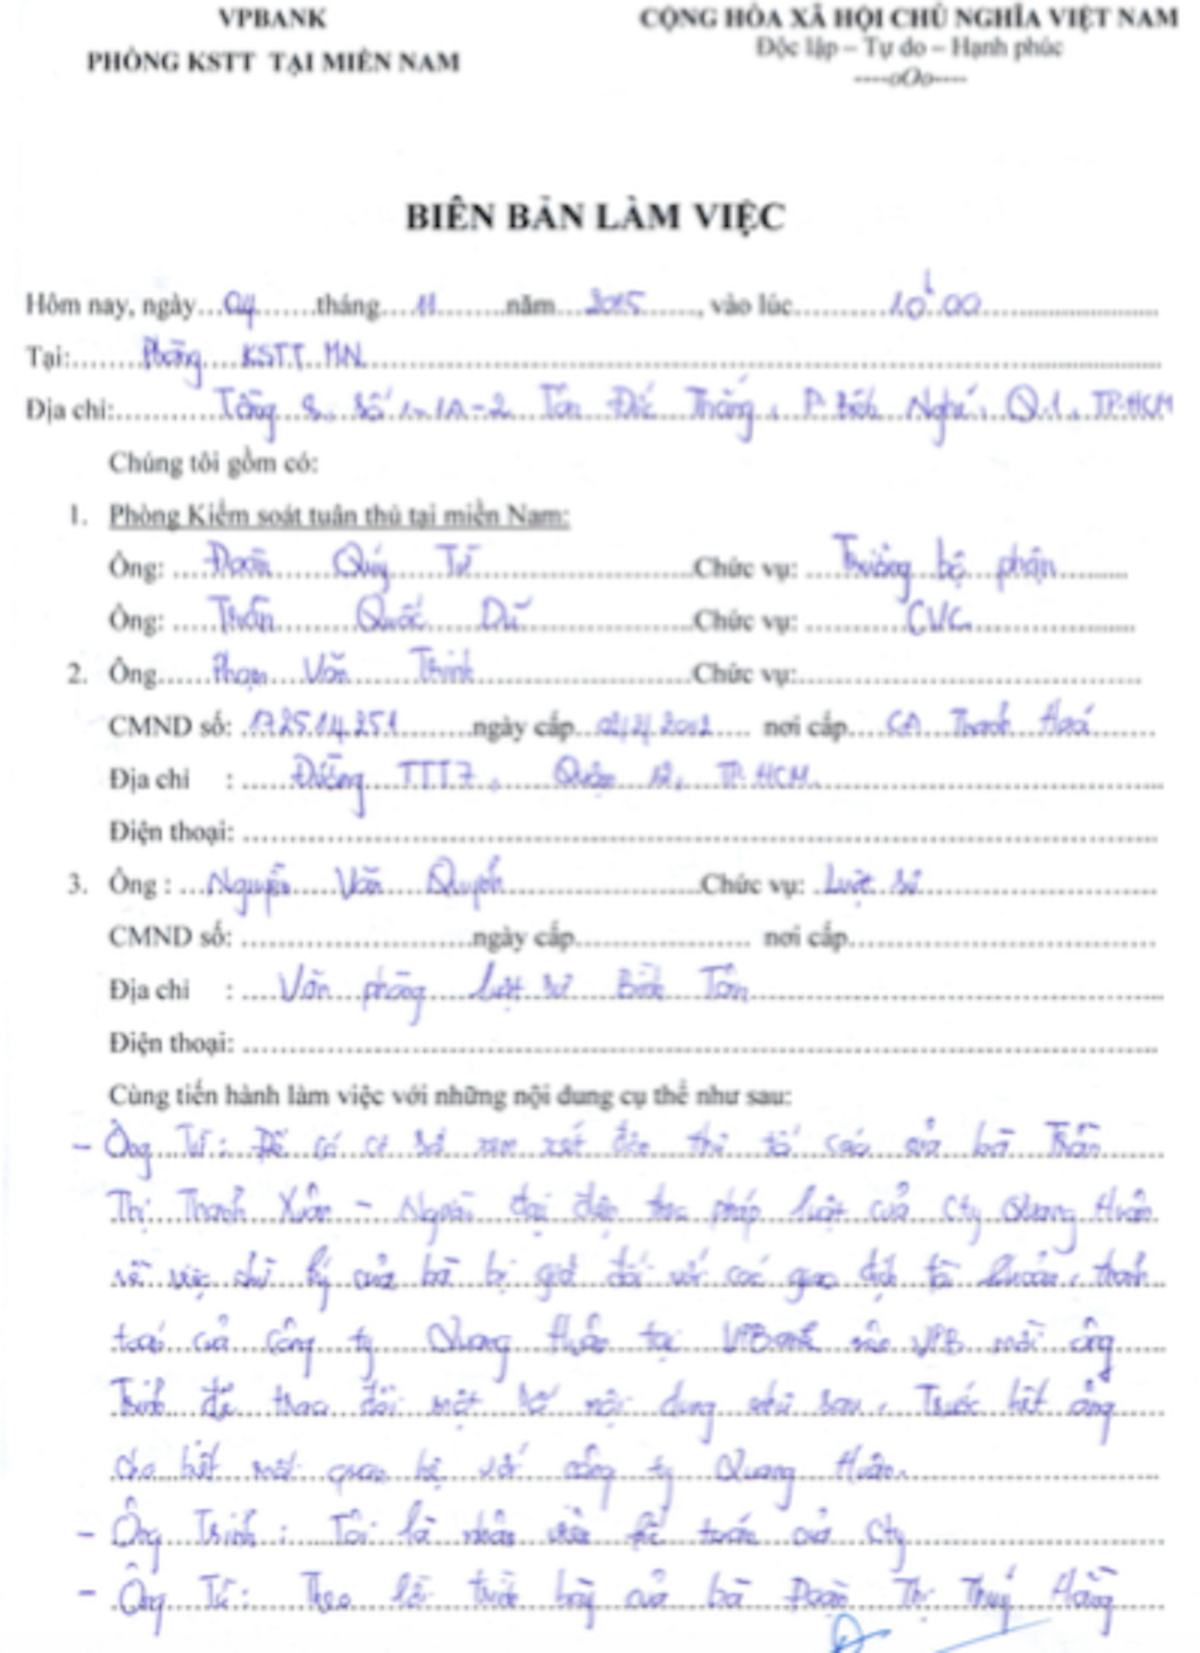 VPBANK
PHÒNG KSTT TẠI MIỀN NAM
CỘNG HÒA XÃ HỘI CHỦ NGHĨA VIỆT NAM
Độc lập – Tự do – Hạnh phúc
----oOo----
BIÊN BẢN LÀM VIỆC
Hôm nay, ngày 04 tháng 11 năm 2015, vào lúc 10h00
Tại: Phòng KSTT MN
Địa chỉ: Tầng 8, Số 1-1A-2 Tôn Đức Thắng, P. Bến Nghé, Q.1, TP.HCM
Chúng tôi gồm có:
1. Phòng Kiểm soát tuân thủ tại miền Nam:
Ông: Đoàn Quý Tư Chức vụ: Trưởng bộ phận
Ông: Trần Quốc Dũ Chức vụ: CVC
2. Ông Phạm Văn Trinh Chức vụ:
CMND số: 172514251 ngày cấp 2012 nơi cấp CA Thanh Hoá
Địa chỉ : Đường TTT7, Quận 12, TP.HCM.
Điện thoại:
3. Ông : Nguyễn Văn Quynh Chức vụ: Luật sư
CMND số: ngày cấp nơi cấp
Địa chỉ : Văn phòng luật sư Bình Tân
Điện thoại:
Cùng tiến hành làm việc với những nội dung cụ thể như sau:
- Ông Tư: Để có cơ sở xem xét đơn thư tố cáo của bà Trần
Thị Thanh Xuân - Người đại diện theo pháp luật của Cty Quang Huân
về việc chữ ký của bà bị giả đối với các giao dịch tài khoản, thanh
toán của công ty Quang Huân tại VPBank nên VPB mời ông
Trinh để trao đổi một số nội dung như sau. Trước hết ông
cho biết mối quan hệ với công ty Quang Huân.
- Ông Trinh: Tôi là nhân viên kế toán của Cty
- Ông Tư: Theo lời trình bày của bà Đoàn Thị Thuý Hằng